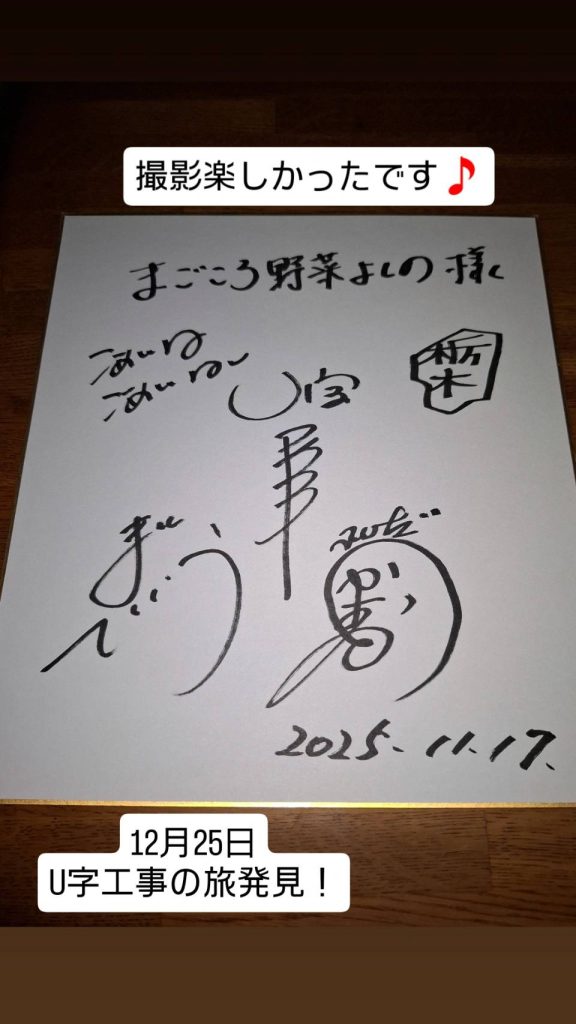 撮影楽しかったです♪
まごころ野菜よしの様
ごめいね
ごめいねー
U字
栃木
工事
2025.11.17.
12月25日
U字工事の旅発見！